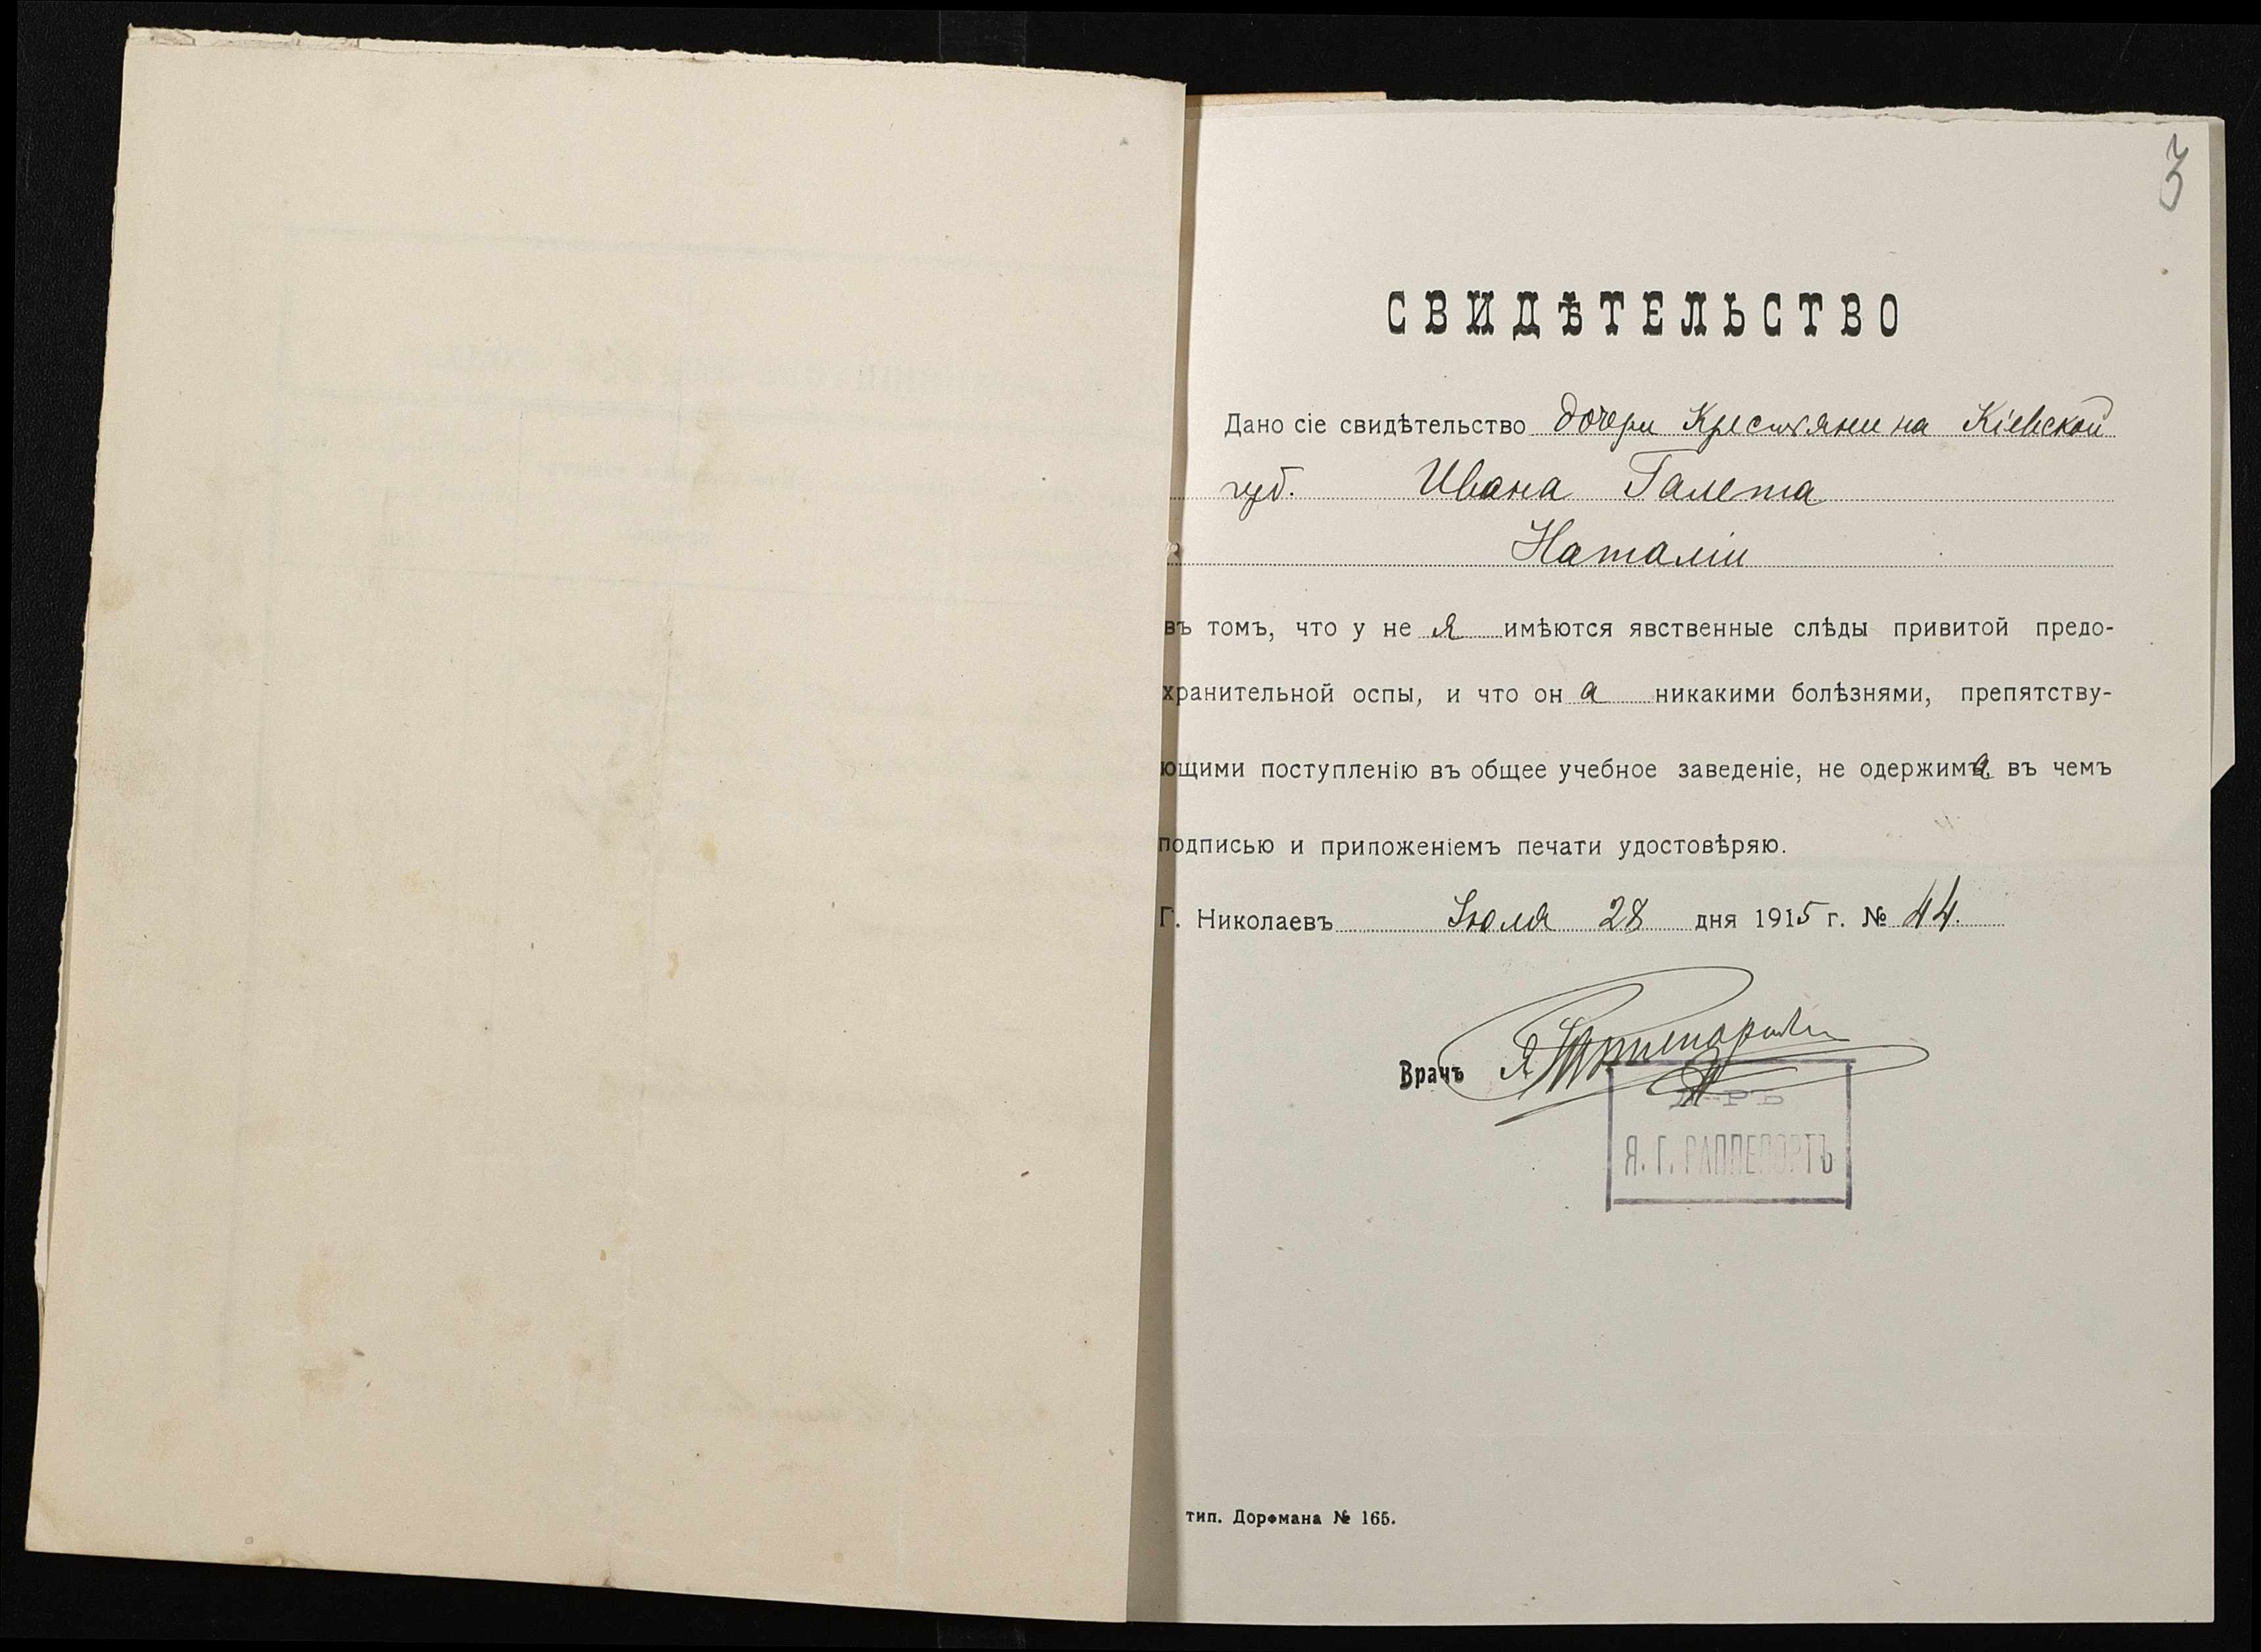 3
СВИДѢТЕЛЬСТВО
Дано сіе свидѣтельство дочери Крестьянина Кіевской
губ. Ивана Галета
Наталіи
въ томъ, что у не я имѣются явственные слѣды привитой предо-
хранительной оспы, и что он а никакими болѣзнями, препятству-
ющими поступленію въ общее учебное заведеніе, не одержима въ чемъ
подписью и приложеніемъ печати удостовѣряю.
Г. Николаевъ Іюля 28 дня 1915 г. № 44.
Врачъ
Д-РЪ
Я. Г. РАППЕПОРТЪ
тип. Дорфмана № 165.